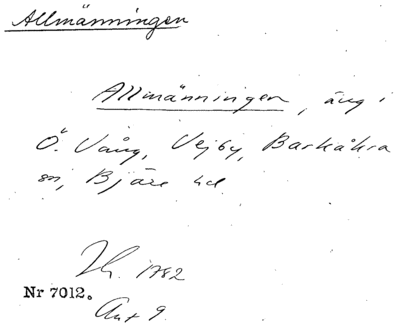 Allmänningen
Allmänningen, äng i
Ö. Vång, Vejby, Barkåkra
sn, Bjäre hd
Sk. 1782
Nr 7012.
Akt 9